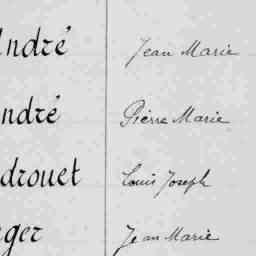 André Jean Marie
ndré Pierre Marie
drouet Louis Joseph
ger Jean Marie